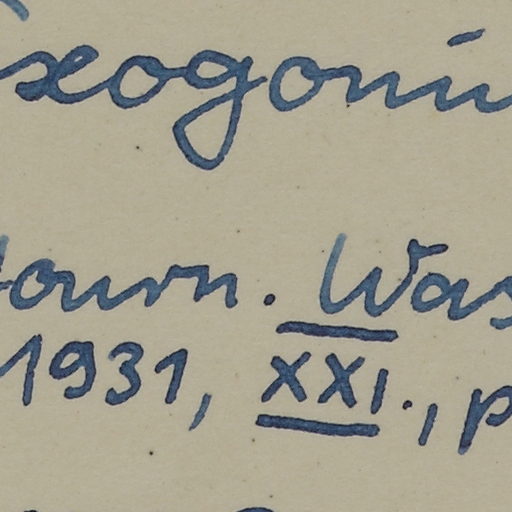 xogoni
Journ. Was
1931, XXI., p